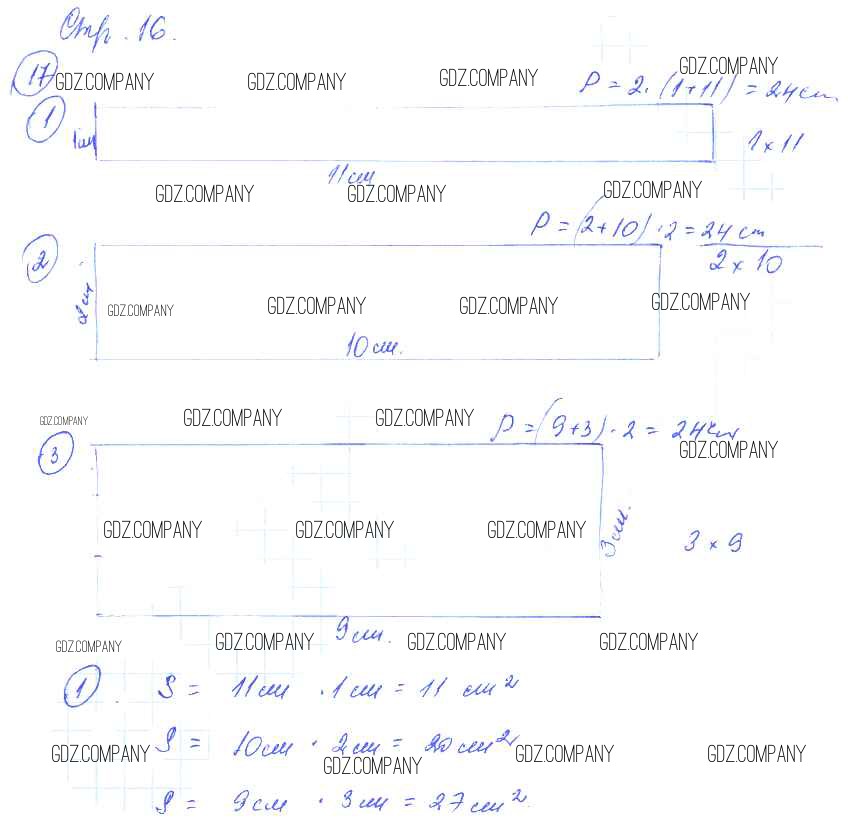 Стр. 16.
17
GDZ.COMPANY GDZ.COMPANY GDZ.COMPANY GDZ.COMPANY
P = 2 · (1+11) = 24 см
1
1 см
1 × 11
11 см
GDZ.COMPANY GDZ.COMPANY GDZ.COMPANY
P = (2+10) · 2 = 24 см
2
2 × 10
2 см
GDZ.COMPANY GDZ.COMPANY GDZ.COMPANY GDZ.COMPANY
10 см.
GDZ.COMPANY GDZ.COMPANY GDZ.COMPANY
P = (9+3) · 2 = 24 см
3
GDZ.COMPANY
GDZ.COMPANY GDZ.COMPANY GDZ.COMPANY
3 см.
3 × 9
9 см.
GDZ.COMPANY GDZ.COMPANY GDZ.COMPANY GDZ.COMPANY
1 S = 11 см · 1 см = 11 см²
S = 10 см · 2 см = 20 см²
GDZ.COMPANY GDZ.COMPANY GDZ.COMPANY GDZ.COMPANY
S = 9 см · 3 см = 27 см²